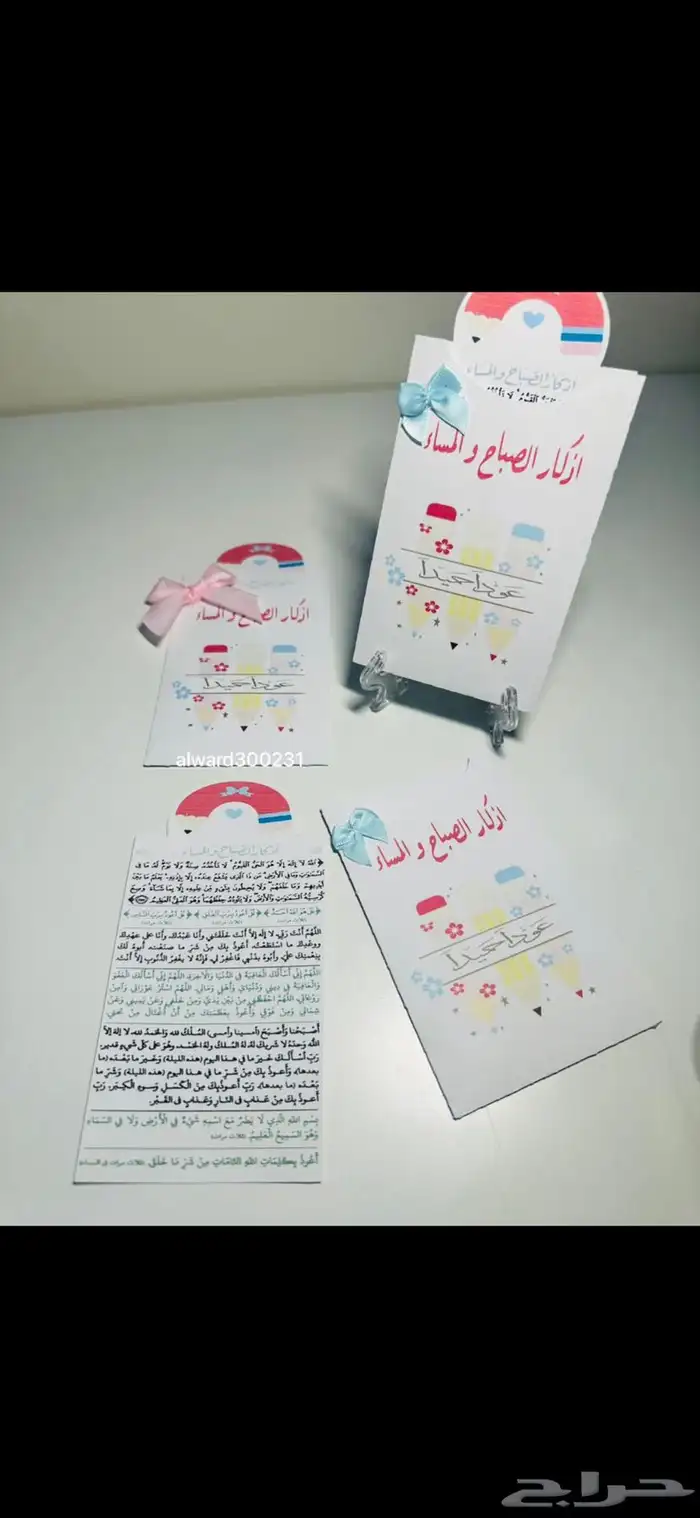 اذكار الصباح والمساء
اذكار الصباح و المساء
عودا حميدا
اذكار الصباح و المساء
عودا حميدا
alward300231
اذكار الصباح و المساء
عودا حميدا
اذكار الصباح والمساء
﴿اللَّهُ لَا إِلَهَ إِلَّا هُوَ الْحَيُّ الْقَيُّومُ لَا تَأْخُذُهُ سِنَةٌ وَلَا نَوْمٌ لَهُ مَا فِي
السَّمَاوَاتِ وَمَا فِي الْأَرْضِ مَنْ ذَا الَّذِي يَشْفَعُ عِنْدَهُ إِلَّا بِإِذْنِهِ يَعْلَمُ مَا بَيْنَ
أَيْدِيهِمْ وَمَا خَلْفَهُمْ وَلَا يُحِيطُونَ بِشَيْءٍ مِنْ عِلْمِهِ إِلَّا بِمَا شَاءَ وَسِعَ
كُرْسِيُّهُ السَّمَاوَاتِ وَالْأَرْضَ وَلَا يَئُودُهُ حِفْظُهُمَا وَهُوَ الْعَلِيُّ الْعَظِيمُ﴾
﴿قُلْ هُوَ اللَّهُ أَحَدٌ﴾ ﴿قُلْ أَعُوذُ بِرَبِّ الْفَلَقِ﴾ ﴿قُلْ أَعُوذُ بِرَبِّ النَّاسِ﴾
اللَّهُمَّ أَنْتَ رَبِّي، لَا إِلَهَ إِلَّا أَنْتَ خَلَقْتَنِي وَأَنَا عَبْدُكَ، وَأَنَا عَلَى عَهْدِكَ
وَوَعْدِكَ مَا اسْتَطَعْتُ، أَعُوذُ بِكَ مِنْ شَرِّ مَا صَنَعْتُ، أَبُوءُ لَكَ
بِنِعْمَتِكَ عَلَيَّ، وَأَبُوءُ بِذَنْبِي فَاغْفِرْ لِي، فَإِنَّهُ لَا يَغْفِرُ الذُّنُوبَ إِلَّا أَنْتَ.
اللَّهُمَّ إِنِّي أَسْأَلُكَ الْعَافِيَةَ فِي الدُّنْيَا وَالْآخِرَةِ، اللَّهُمَّ إِنِّي أَسْأَلُكَ الْعَفْوَ
وَالْعَافِيَةَ فِي دِينِي وَدُنْيَايَ وَأَهْلِي وَمَالِي، اللَّهُمَّ اسْتُرْ عَوْرَاتِي وَآمِنْ
رَوْعَاتِي، اللَّهُمَّ احْفَظْنِي مِنْ بَيْنِ يَدَيَّ وَمِنْ خَلْفِي وَعَنْ يَمِينِي وَعَنْ
شِمَالِي وَمِنْ فَوْقِي وَأَعُوذُ بِعَظَمَتِكَ مِنْ أَنْ أُغْتَالَ مِنْ تَحْتِي.
أَصْبَحْنَا وَأَصْبَحَ (أمسينا وأمسى) الْمُلْكُ لله وَالْحَمْدُ لله، لَا إِلَهَ إِلَّا
اللَّه وَحْدَهُ لَا شَرِيكَ لَهُ، لَهُ الْمُلْكُ وَلَهُ الْحَمْدُ، وَهُوَ عَلَى كُلِّ شَيْءٍ قَدِيرٌ،
رَبِّ أَسْأَلُكَ خَيْرَ مَا فِي هَذَا الْيَوْمِ (هذه الليلة) وَخَيْرَ مَا بَعْدَهُ (ما
بعدها)، وَأَعُوذُ بِكَ مِنْ شَرِّ مَا فِي هَذَا الْيَوْمِ (هذه الليلة) وَشَرِّ مَا
بَعْدَهُ (ما بعدها)، رَبِّ أَعُوذُ بِكَ مِنَ الْكَسَلِ وَسُوءِ الْكِبَرِ، رَبِّ
أَعُوذُ بِكَ مِنْ عَذَابٍ فِي النَّارِ وَعَذَابٍ فِي الْقَبْرِ.
بِسْمِ اللَّهِ الَّذِي لَا يَضُرُّ مَعَ اسْمِهِ شَيْءٌ فِي الْأَرْضِ وَلَا فِي السَّمَاءِ
وَهُوَ السَّمِيعُ الْعَلِيمُ. (ثلاث مرات)
أَعُوذُ بِكَلِمَاتِ اللَّهِ التَّامَّاتِ مِنْ شَرِّ مَا خَلَقَ. (ثلاث مرات في المساء)
حراج